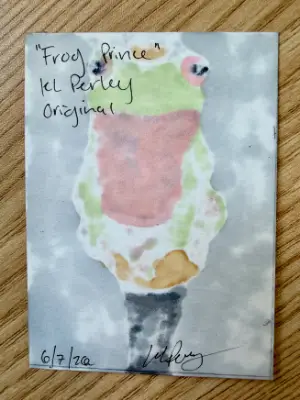 "Frog Prince"
kl Perley
Original
6/7/20